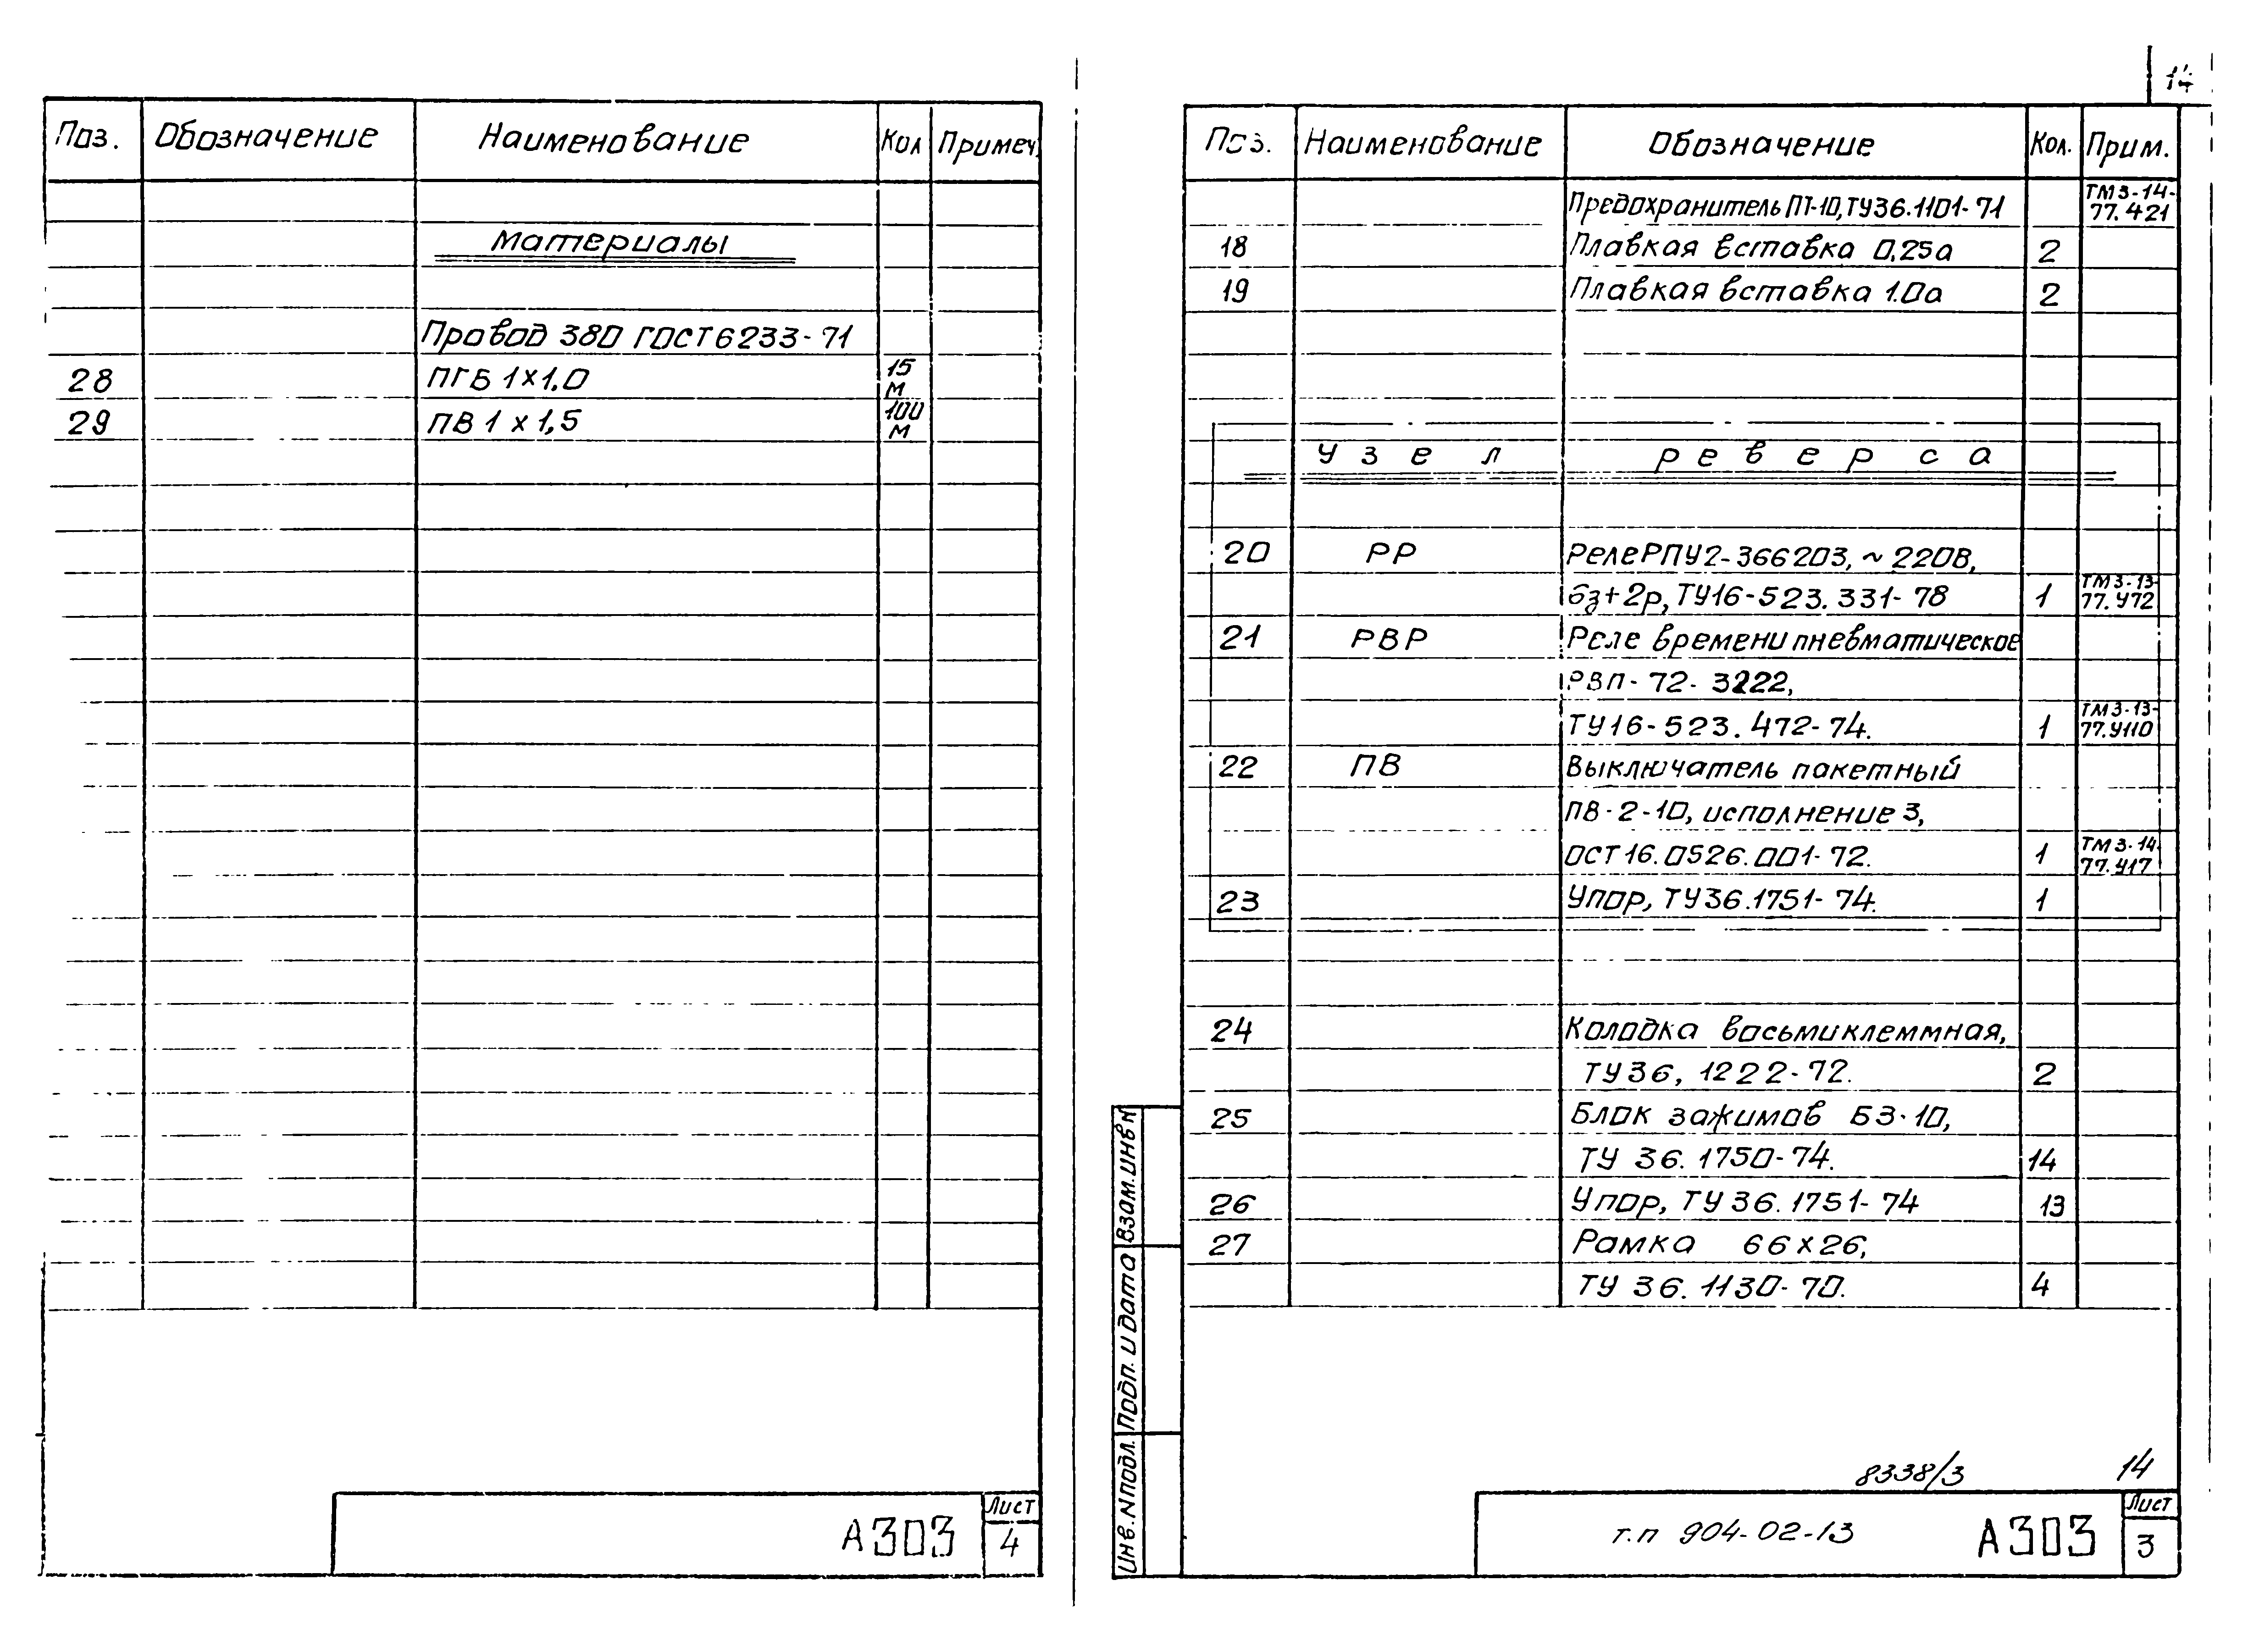 Поз. Обозначение Наименование Кол Примеч.
Материалы
Провод 380 ГОСТ 6233-71
28 ПГВ 1×1.0 15 м
29 ПВ 1 × 1,5 100 м
А303 Лист 4
14
Поз. Наименование Обозначение Кол. Прим.
Предохранитель ПТ-10, ТУ36.1101-71 ТМ3-14-77.421
18 Плавкая вставка 0,25а 2
19 Плавкая вставка 1.0а 2
Узел реверса
20 РР Реле РПУ2-366203, ~220В,
6з+2р, ТУ16-523.331-78 1 ТМ3-13-77.У72
21 РВР Реле времени пневматическое
РВП-72-3222,
ТУ16-523.472-74. 1 ТМ3-13-77.У110
22 ПВ Выключатель пакетный
ПВ-2-10, исполнение 3,
ОСТ 16.0526.001-72. 1 ТМ3-14-77.У17
23 Упор, ТУ36.1751-74. 1
24 Колодка восьмиклеммная,
ТУ36, 1222-72. 2
25 Блок зажимов БЗ-10,
ТУ 36.1750-74. 14
26 Упор, ТУ 36.1751-74 13
27 Рамка 66×26,
ТУ 36.1130-70. 4
Взам. инв N
Подп. и дата
Инв. N подл.
8338/3 14
т.п 904-02-13 А303 Лист 3